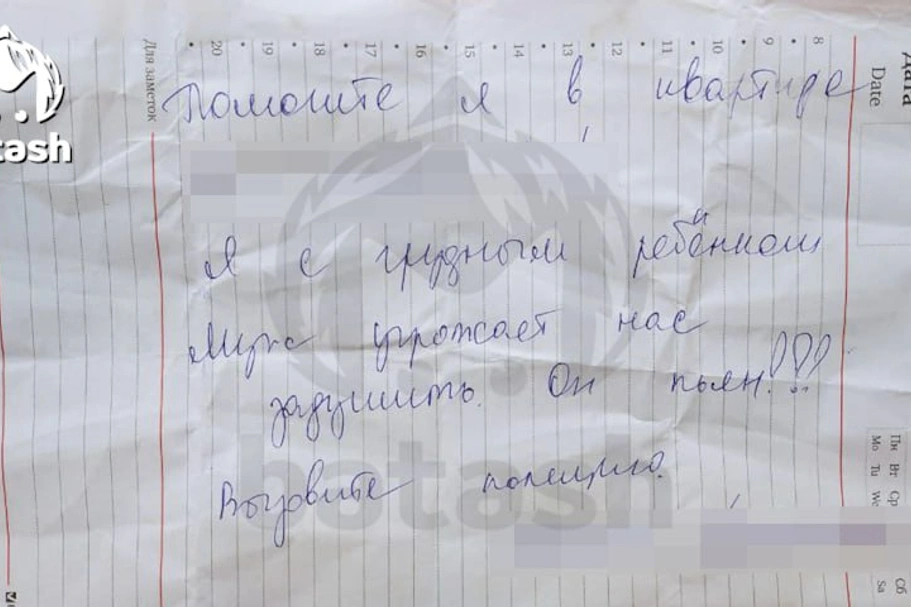 Помогите я в квартире
Я с грудным ребёнком
Муж угрожает нас
задушить. Он пьян!!!
Вызовите полицию.
Для заметок
20 • 19 • 18 • 17 • 16 • 15 • 14 • 13 • 12 • 11 • 10 • 9 • 8
Дата
Date
Пн Вт Ср
Mo Tu We
Сб
Sa
tash
botash